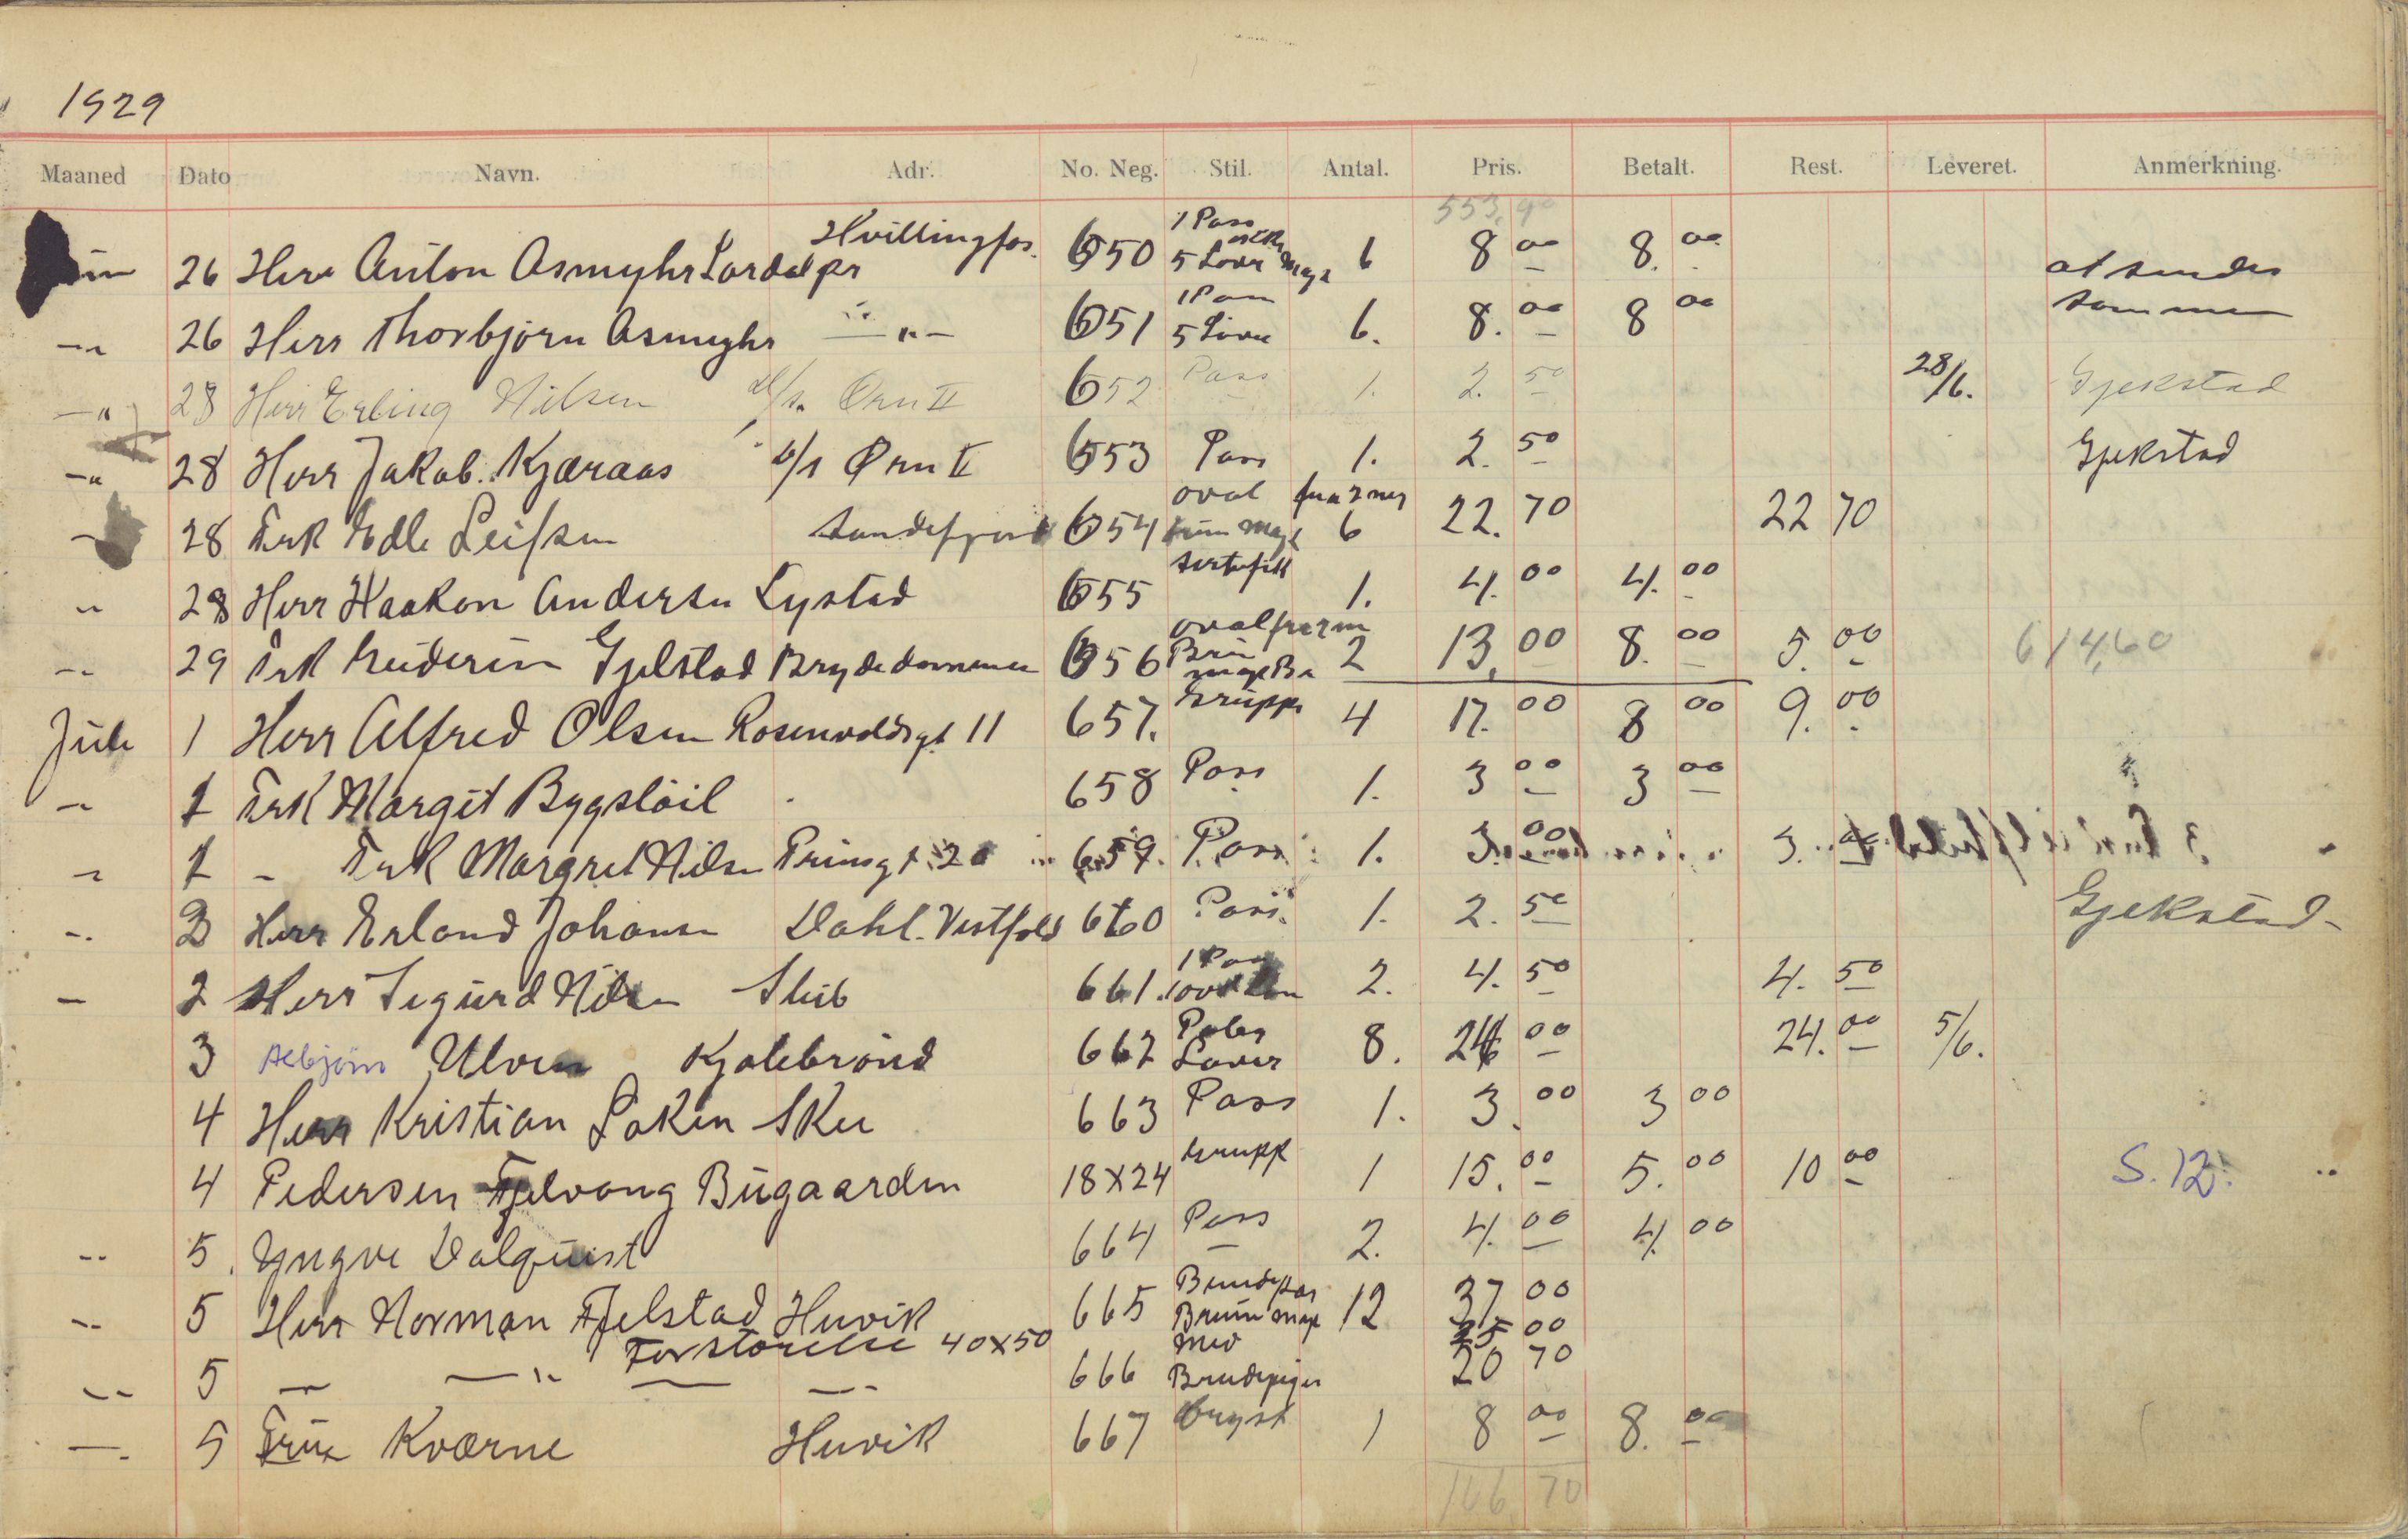 1929
Maaned Dato Navn. Adr. No. Neg. Stil. Antal. Pris. Betalt. Rest. Leveret. Anmerkning.
553,90
26 Herr Anton Asmyhr Lardal pr Hvillingfos. 650 1 Pass 5 6 8 00 8. 00 at sendes
-"- 26 Herr Thorbjørn Asmyhr -"- 651 1 Pass 5 6. 8. 00 8 00 sammen
-"- 28 Herr Erling Nilsen D/s. Ørn II 652 Pass 1. 2. 50 28/6. Gjekstad
-"- 28 Herr Jakob. Kjæraas D/s Ørn II 653 Pass 1. 2. 50 Gjekstad
- 28 Frk Edle Leifsen Sandefjord 654 oval 6 22. 70 22 70
-"- 28 Herr Haakon Andersen Lystad 655 1. 4. 00 4. 00
-"- 29 Frk Gjelstad 656 oval 2 13, 00 8. 00 5. 00 614,60
Juli 1 Herr Alfred Olsen Rosenvoldsgt 11 657. Gruppe 4 17. 00 8 00 9. 00
-"- 1 Frk Margit Bygsløil 658 Pass 1. 3 00 3 00
-"- 1 - Frk Margret Nilsen Prinsgt. 20 659. Pass 1. 3. 00 3. 00
-"- 2 Herr Erland Johansen Dahl. Vestfold 660 Pass. 1. 2. 50 Gjekstad-
- 2 Herr Sigurd Nilsen 661. 1 Pass 2. 4. 50 4. 50
3 Asbjørn Ulven Kjølebrønd 662 8. 24 00 24. 00 5/6.
4 Herr Kristian Løken Skee 663 Pass 1. 3. 00 3 00
4 Pedersen Fjelvang Bugaarden 18X24 Gruppe 1 15. 00 5. 00 10 00 S. 12.
-"- 5. Yngve Dalquist 664 Pass 2. 4. 00 4. 00
-"- 5 Herr Norman Fjelstad Huvik 665 Brudepar Brun map 12 37 00
25 00
-"- 5 -"- Forstørrelse 40X50 666 med Brudepiger 20 70
-"- 5 Fru Kværne Huvik 667 Bryst 1 8 00 8. 00
166 70